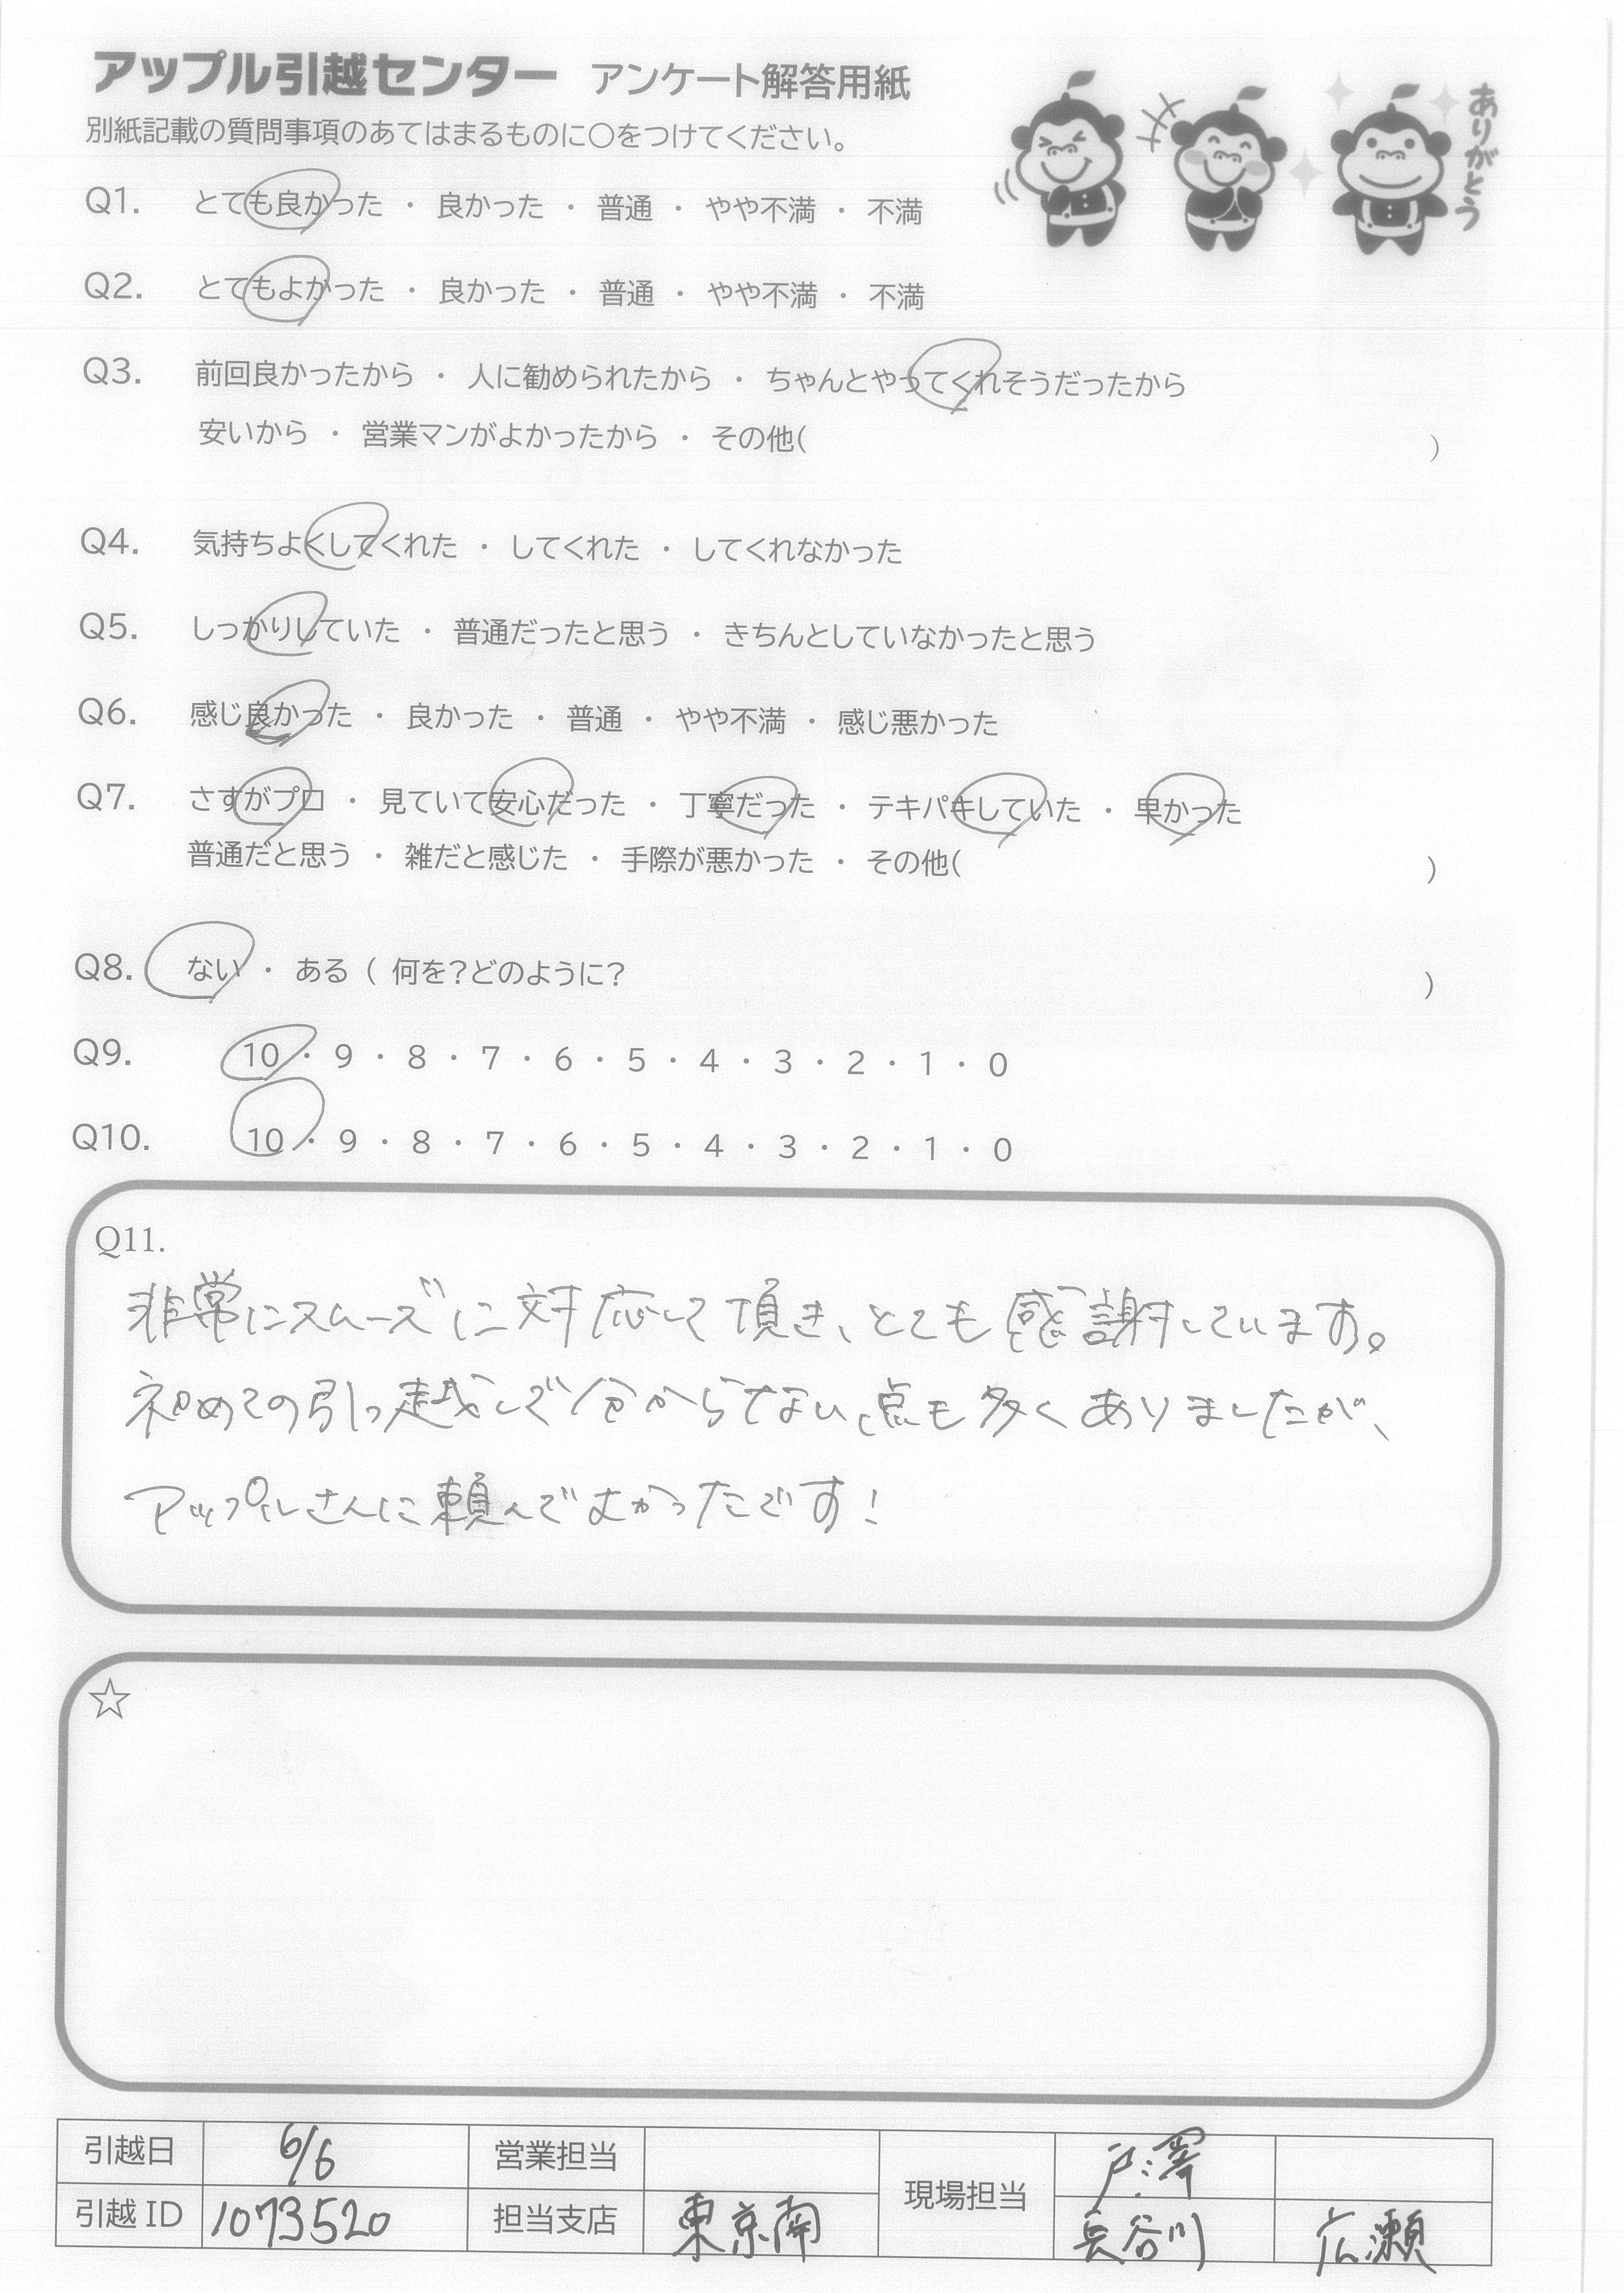 アップル引越センター アンケート解答用紙
ありがとう
別紙記載の質問事項のあてはまるものに○をつけてください。
Q1. とても良かった ・ 良かった ・ 普通 ・ やや不満 ・ 不満
Q2. とてもよかった ・ 良かった ・ 普通 ・ やや不満 ・ 不満
Q3. 前回良かったから ・ 人に勧められたから ・ ちゃんとやってくれそうだったから
安いから ・ 営業マンがよかったから ・ その他( )
Q4. 気持ちよくしてくれた ・ してくれた ・ してくれなかった
Q5. しっかりしていた ・ 普通だったと思う ・ きちんとしていなかったと思う
Q6. 感じ良かった ・ 良かった ・ 普通 ・ やや不満 ・ 感じ悪かった
Q7. さすがプロ ・ 見ていて安心だった ・ 丁寧だった ・ テキパキしていた ・ 早かった
普通だと思う ・ 雑だと感じた ・ 手際が悪かった ・ その他( )
Q8. ない ・ ある ( 何を?どのように? )
Q9. 10 ・ 9 ・ 8 ・ 7 ・ 6 ・ 5 ・ 4 ・ 3 ・ 2 ・ 1 ・ 0
Q10. 10 ・ 9 ・ 8 ・ 7 ・ 6 ・ 5 ・ 4 ・ 3 ・ 2 ・ 1 ・ 0
Q11.
非常にスムーズに対応して頂き、とても感謝しています。
初めての引っ越しで分からない点も多くありましたが、
アップルさんに頼んでよかったです!
☆
引越日 6/6 営業担当 現場担当 戸澤
引越ID 1073520 担当支店 東京南 長谷川 広瀬